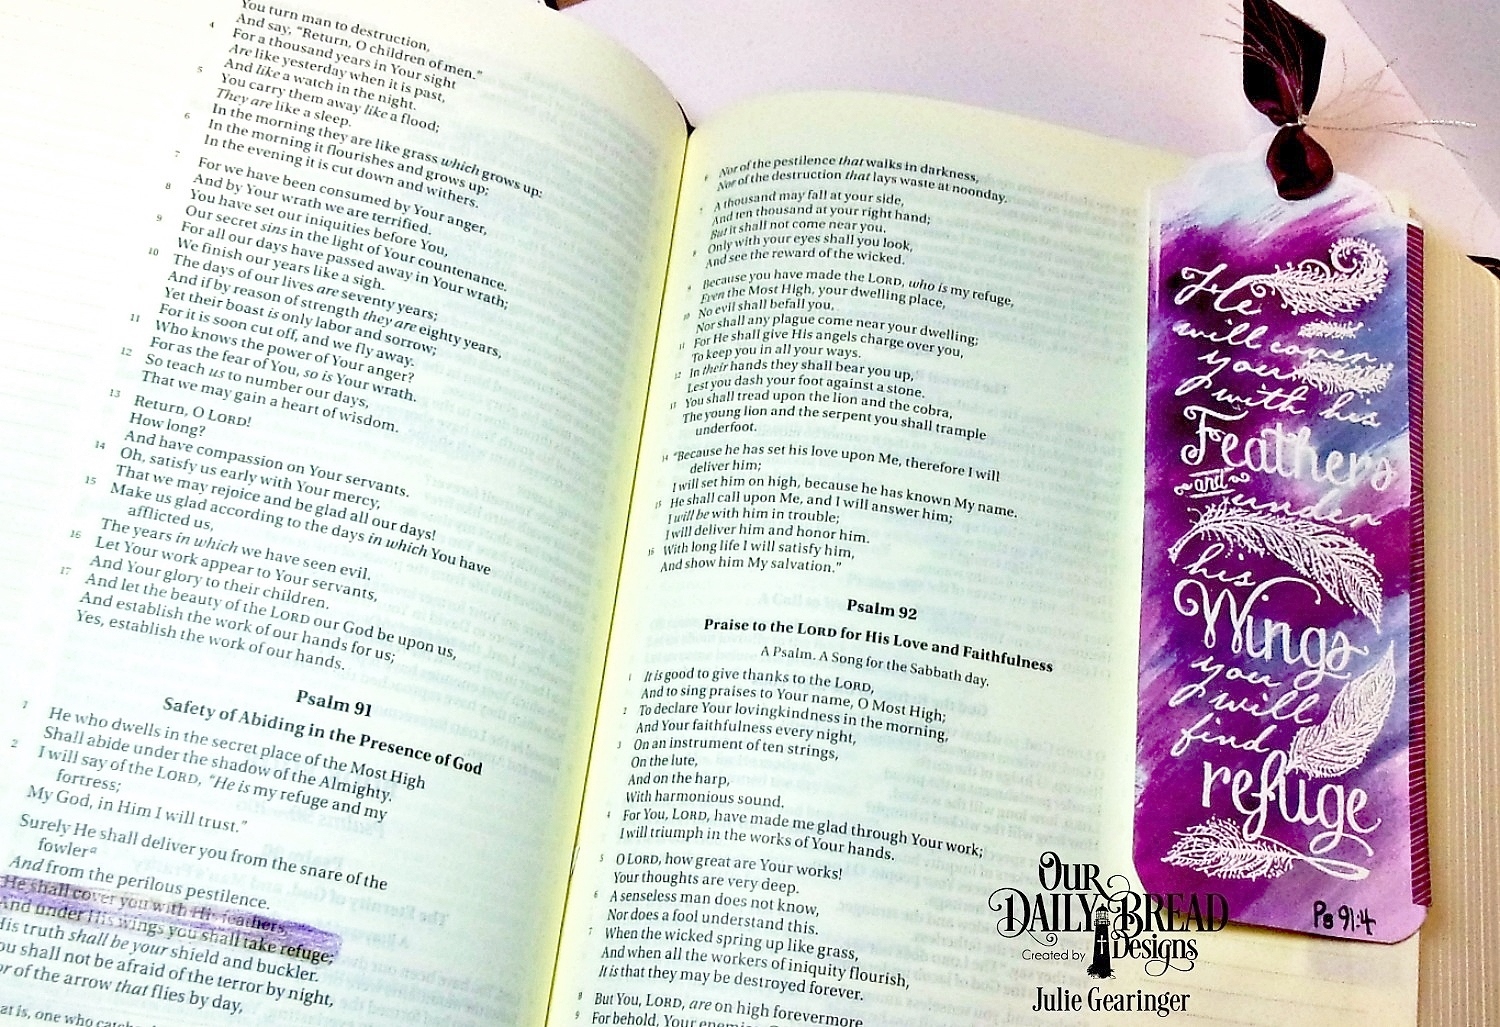 You turn man to destruction,
4 And say, "Return, O children of men."
For a thousand years in Your sight
Are like yesterday when it is past,
5 And like a watch in the night.
You carry them away like a flood;
They are like a sleep.
6 In the morning they are like grass which grows up:
In the morning it flourishes and grows up;
In the evening it is cut down and withers.
7 For we have been consumed by Your anger,
8 And by Your wrath we are terrified.
You have set our iniquities before You,
9 Our secret sins in the light of Your countenance.
For all our days have passed away in Your wrath;
10 We finish our years like a sigh.
The days of our lives are seventy years;
And if by reason of strength they are eighty years,
Yet their boast is only labor and sorrow;
11 For it is soon cut off, and we fly away.
Who knows the power of Your anger?
12 For as the fear of You, so is Your wrath.
So teach us to number our days,
That we may gain a heart of wisdom.
13 Return, O LORD!
How long?
14 And have compassion on Your servants.
Oh, satisfy us early with Your mercy,
15 That we may rejoice and be glad all our days!
Make us glad according to the days in which You have
afflicted us,
16 The years in which we have seen evil.
Let Your work appear to Your servants,
17 And Your glory to their children.
And let the beauty of the LORD our God be upon us,
And establish the work of our hands for us;
Yes, establish the work of our hands.
Psalm 91
Safety of Abiding in the Presence of God
1 He who dwells in the secret place of the Most High
2 Shall abide under the shadow of the Almighty.
I will say of the LORD, "He is my refuge and my
fortress;
My God, in Him I will trust."
Surely He shall deliver you from the snare of the
fowler a
And from the perilous pestilence.
He shall cover you with His feathers,
And under His wings you shall take refuge;
His truth shall be your shield and buckler.
shall not be afraid of the terror by night,
of the arrow that flies by day,
is, one who
6 Nor of the pestilence that walks in darkness,
Nor of the destruction that lays waste at noonday.
7 A thousand may fall at your side,
And ten thousand at your right hand;
But it shall not come near you.
8 Only with your eyes shall you look,
And see the reward of the wicked.
9 Because you have made the LORD, who is my refuge,
Even the Most High, your dwelling place,
10 No evil shall befall you,
Nor shall any plague come near your dwelling;
11 For He shall give His angels charge over you,
To keep you in all your ways.
12 In their hands they shall bear you up,
Lest you dash your foot against a stone.
13 You shall tread upon the lion and the cobra,
The young lion and the serpent you shall trample
underfoot.
14 "Because he has set his love upon Me, therefore I will
deliver him;
I will set him on high, because he has known My name.
15 He shall call upon Me, and I will answer him;
I will be with him in trouble;
I will deliver him and honor him.
16 With long life I will satisfy him,
And show him My salvation."
Psalm 92
Praise to the LORD for His Love and Faithfulness
A Psalm. A Song for the Sabbath day.
1 It is good to give thanks to the LORD,
And to sing praises to Your name, O Most High;
2 To declare Your lovingkindness in the morning,
And Your faithfulness every night,
3 On an instrument of ten strings,
On the lute,
And on the harp,
With harmonious sound.
4 For You, LORD, have made me glad through Your work;
I will triumph in the works of Your hands.
5 O LORD, how great are Your works!
Your thoughts are very deep.
6 A senseless man does not know,
Nor does a fool understand this.
7 When the wicked spring up like grass,
And when all the workers of iniquity flourish,
It is that they may be destroyed forever.
8 But You, LORD, are on high forevermore
9 For behold, Your enemies
He
will cover
you
with his
Feathers
and under
his
Wings
you
will
find
refuge
Ps 91:4
OUR
DAILY BREAD
Designs
Created by
Julie Gearinger